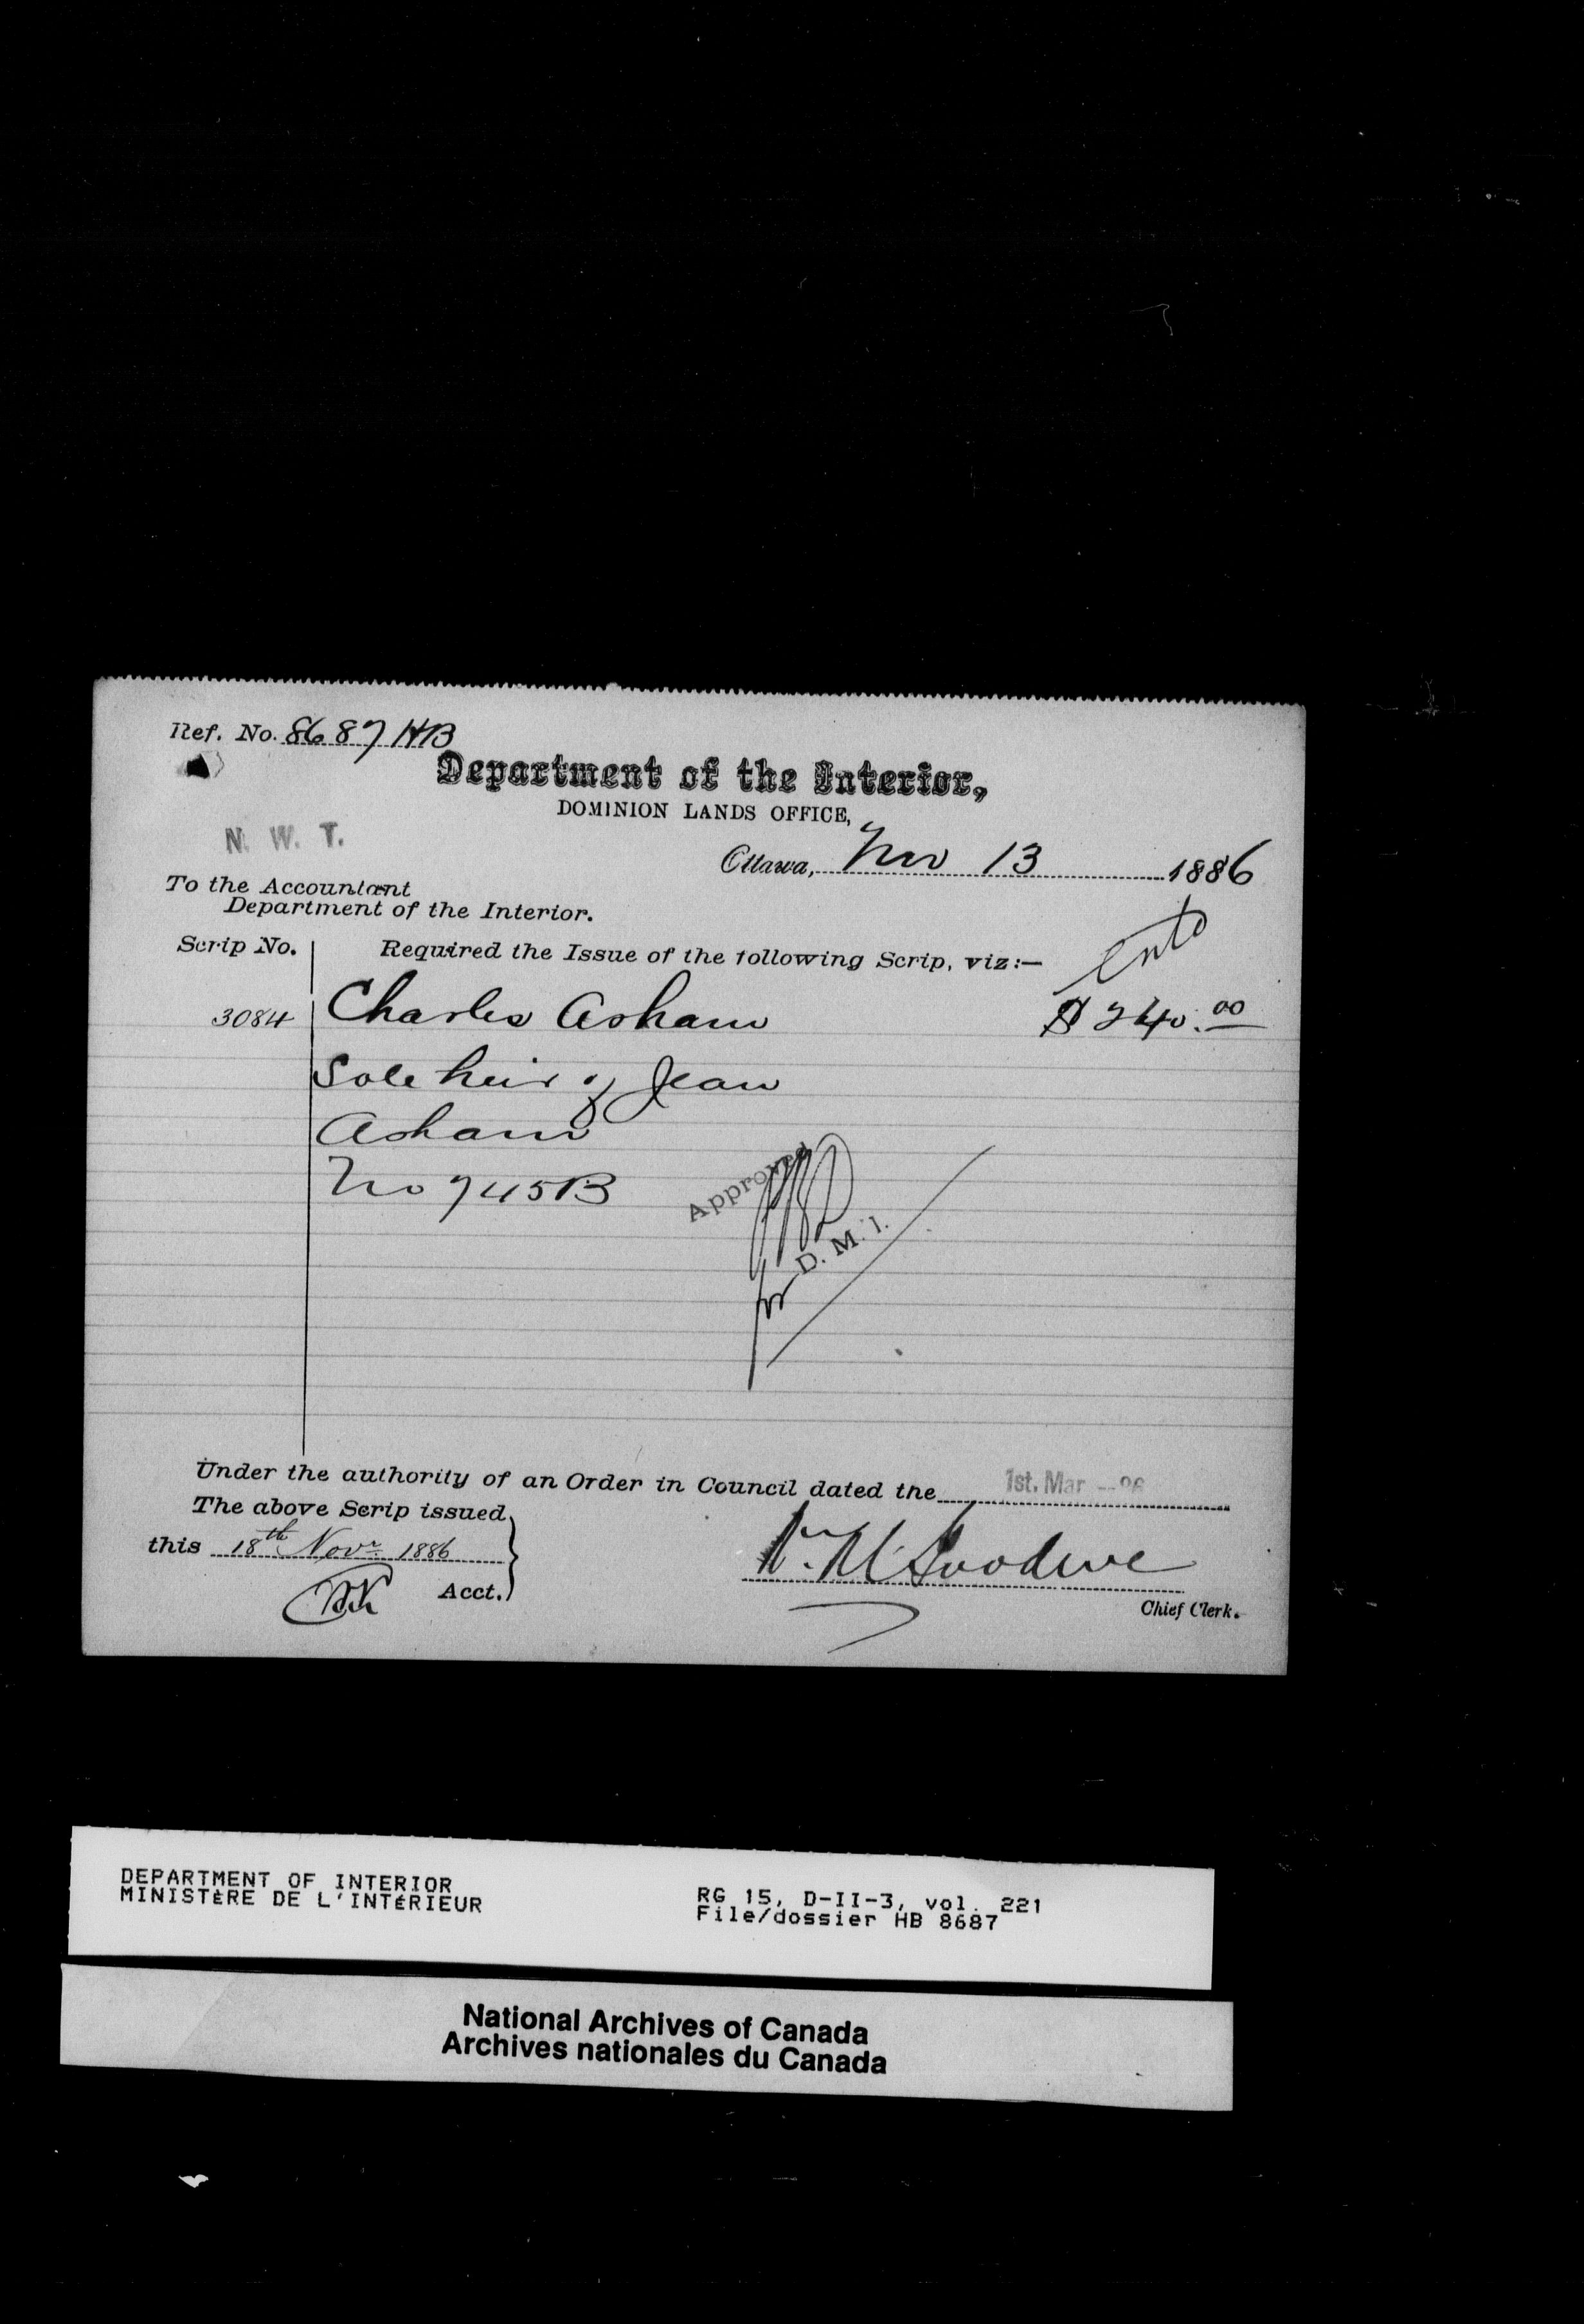 Ref. No. 8687 HB
Department of the Interior,
DOMINION LANDS OFFICE,
N. W. T.
Ottawa, Nov 13 1886
To the Accountant
Department of the Interior.
Scrip No. Required the Issue of the following Scrip, viz:—
3084 Charles Asham $ 240.00
Sole heir of Jean
Asham
No 745B
Approved
for D. M. I.
Under the authority of an Order in Council dated the 1st. Mar -- 86
The above Scrip issued
this 18th Novr. 1886
Acct.
Chief Clerk.
DEPARTMENT OF INTERIOR
MINISTÈRE DE L'INTÉRIEUR
RG 15, D-II-3, vol. 221
File/dossier HB 8687
National Archives of Canada
Archives nationales du Canada